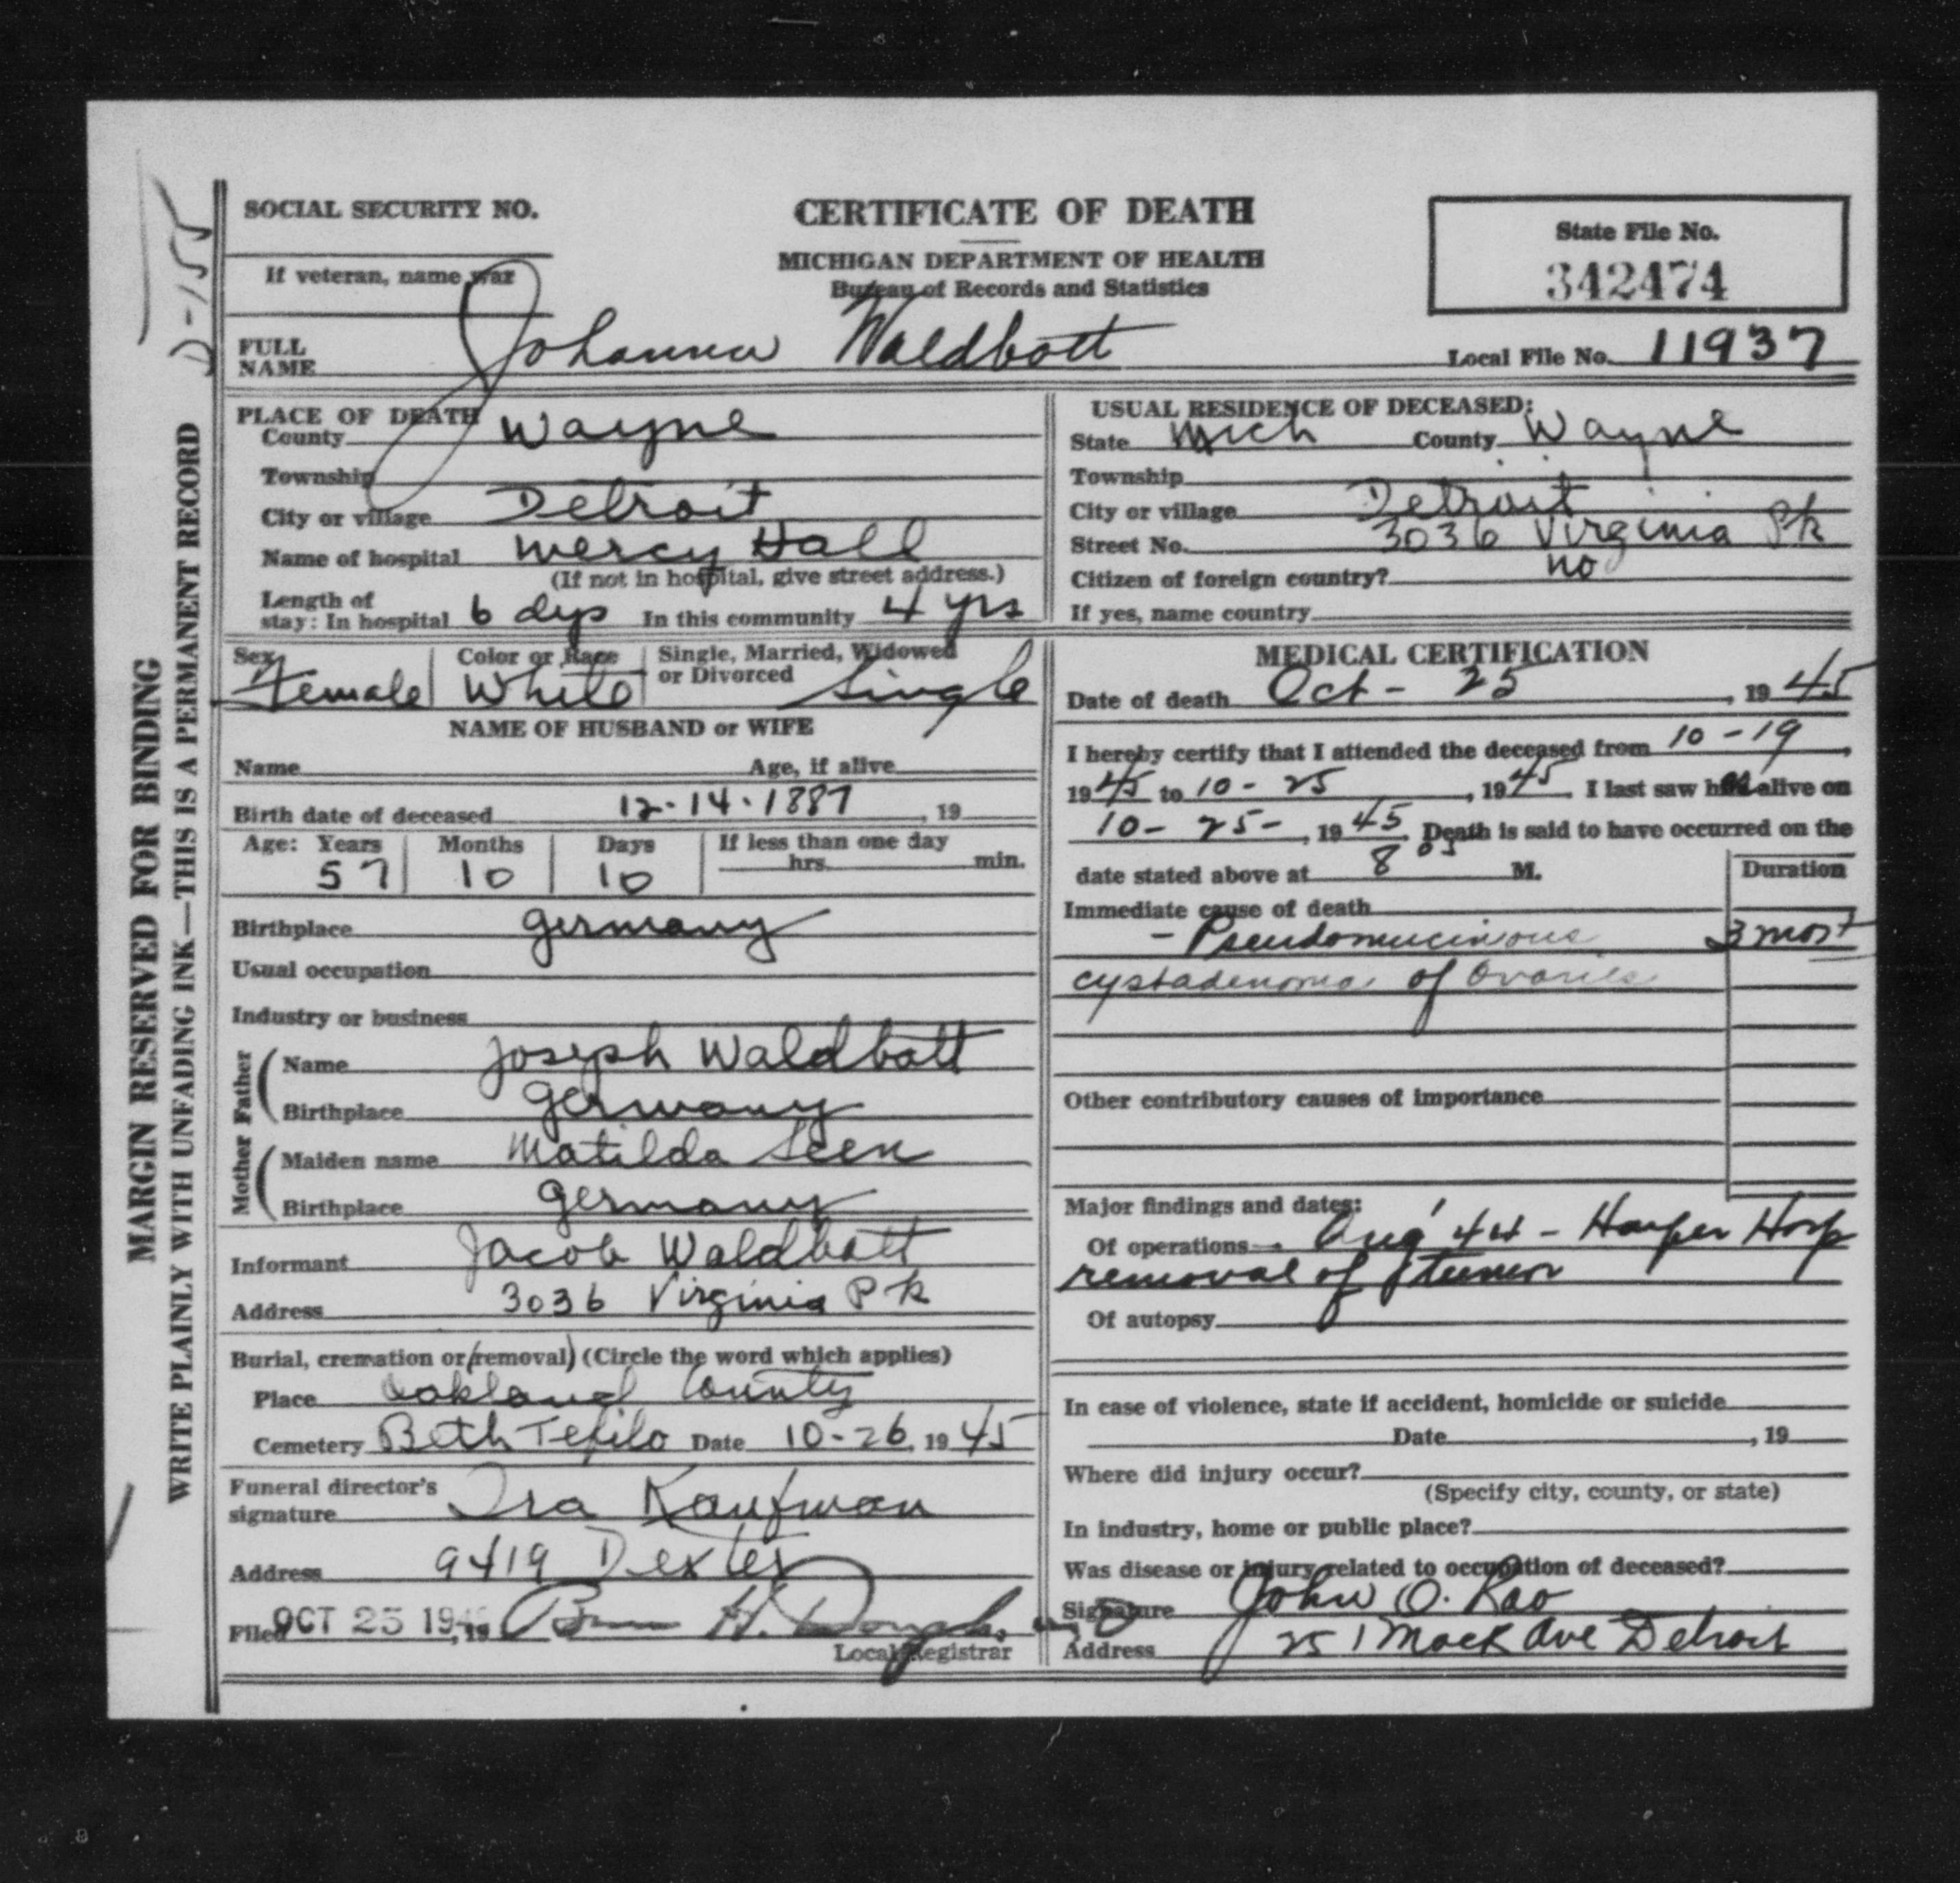 SOCIAL SECURITY NO.
If veteran, name war
CERTIFICATE OF DEATH
MICHIGAN DEPARTMENT OF HEALTH
Bureau of Records and Statistics
State File No.
342474
FULL NAME Johanna Waldbott
Local File No. 11937
D-155
MARGIN RESERVED FOR BINDING
WRITE PLAINLY WITH UNFADING INK—THIS IS A PERMANENT RECORD
PLACE OF DEATH
County Wayne
Township
City or village Detroit
Name of hospital Mercy Hall
(If not in hospital, give street address.)
Length of stay: In hospital 6 dys In this community 4 yrs
USUAL RESIDENCE OF DECEASED:
State Mich County Wayne
Township
City or village Detroit
Street No. 3036 Virginia Pk
Citizen of foreign country? no
If yes, name country
Sex Female Color or Race White Single, Married, Widowed or Divorced Single
NAME OF HUSBAND or WIFE
Name Age, if alive
Birth date of deceased 12-14-1887, 19
Age: Years 57 Months 10 Days 10 If less than one day hrs. min.
Birthplace Germany
Usual occupation
Industry or business
Father
Name Joseph Waldbott
Birthplace Germany
Mother
Maiden name Matilda
Birthplace Germany
Informant Jacob Waldbott
Address 3036 Virginia Pk
Burial, cremation or (removal) (Circle the word which applies)
Place Oakland County
Cemetery Beth Tefilo Date 10-26, 1945
Funeral director's signature Ira Kaufman
Address 9419 Dexter
Filed OCT 25 194 , 19
H. Douglas, M D
Local Registrar
MEDICAL CERTIFICATION
Date of death Oct- 25, 1945
I hereby certify that I attended the deceased from 10-19,
1945 to 10-25, 1945. I last saw her alive on
10-25-, 1945. Death is said to have occurred on the
date stated above at 8 05 M.
Duration
Immediate cause of death
- Pseudomucinous 3 mos+
cystadenoma of Ovaries
Other contributory causes of importance
Major findings and dates:
Of operations Aug' 44 - Harper Hosp
removal of tumor
Of autopsy
In case of violence, state if accident, homicide or suicide
Date , 19
Where did injury occur?
(Specify city, county, or state)
In industry, home or public place?
Was disease or injury related to occupation of deceased?
Signature John O.
Address 251 Mack Ave Detroit